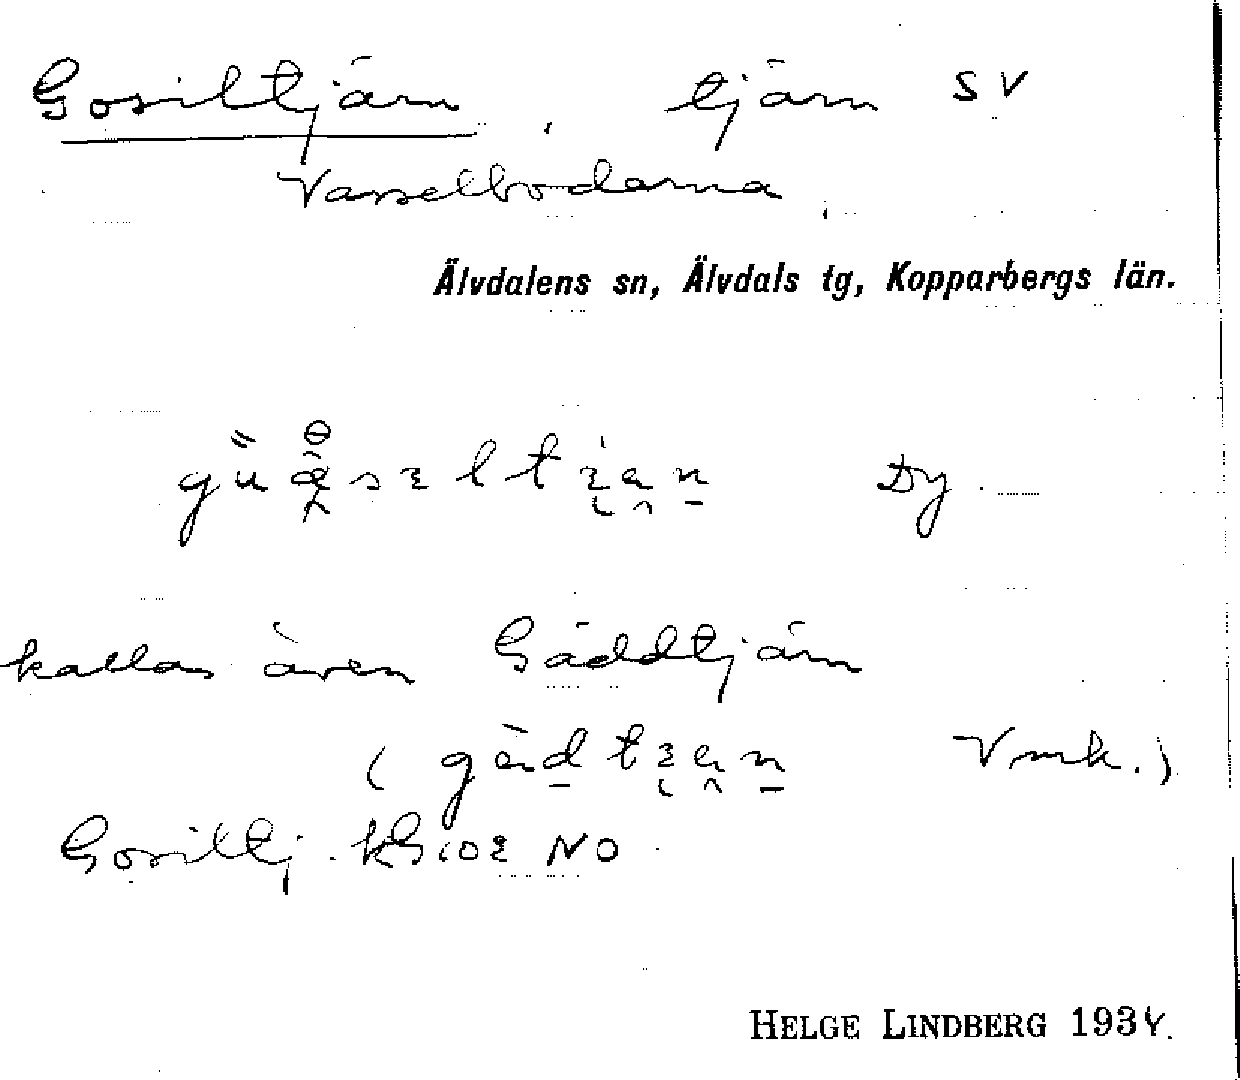 Gosiltjärn, tjärn SV
Vasselbodarna
Älvdalens sn, Älvdals tg, Kopparbergs län.
Dy.
kallas även Gäddtjärn
( Vmk. )
Gosiltj. NO
HELGE LINDBERG 1934.